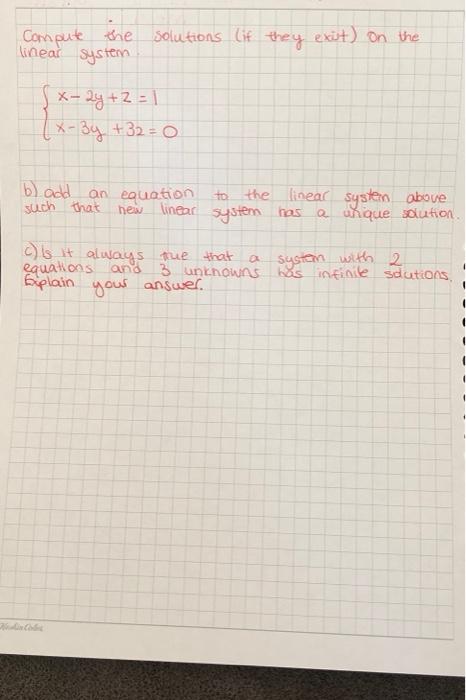 Compute the solutions (if they exist) on the
linear system.
x - 2y + z = 1
x - 3y + 3z = 0
b) add an equation to the linear system above
such that new linear system has a unique solution.
c) Is it always true that a system with 2
equations and 3 unknowns has infinite solutions.
Explain your answer.